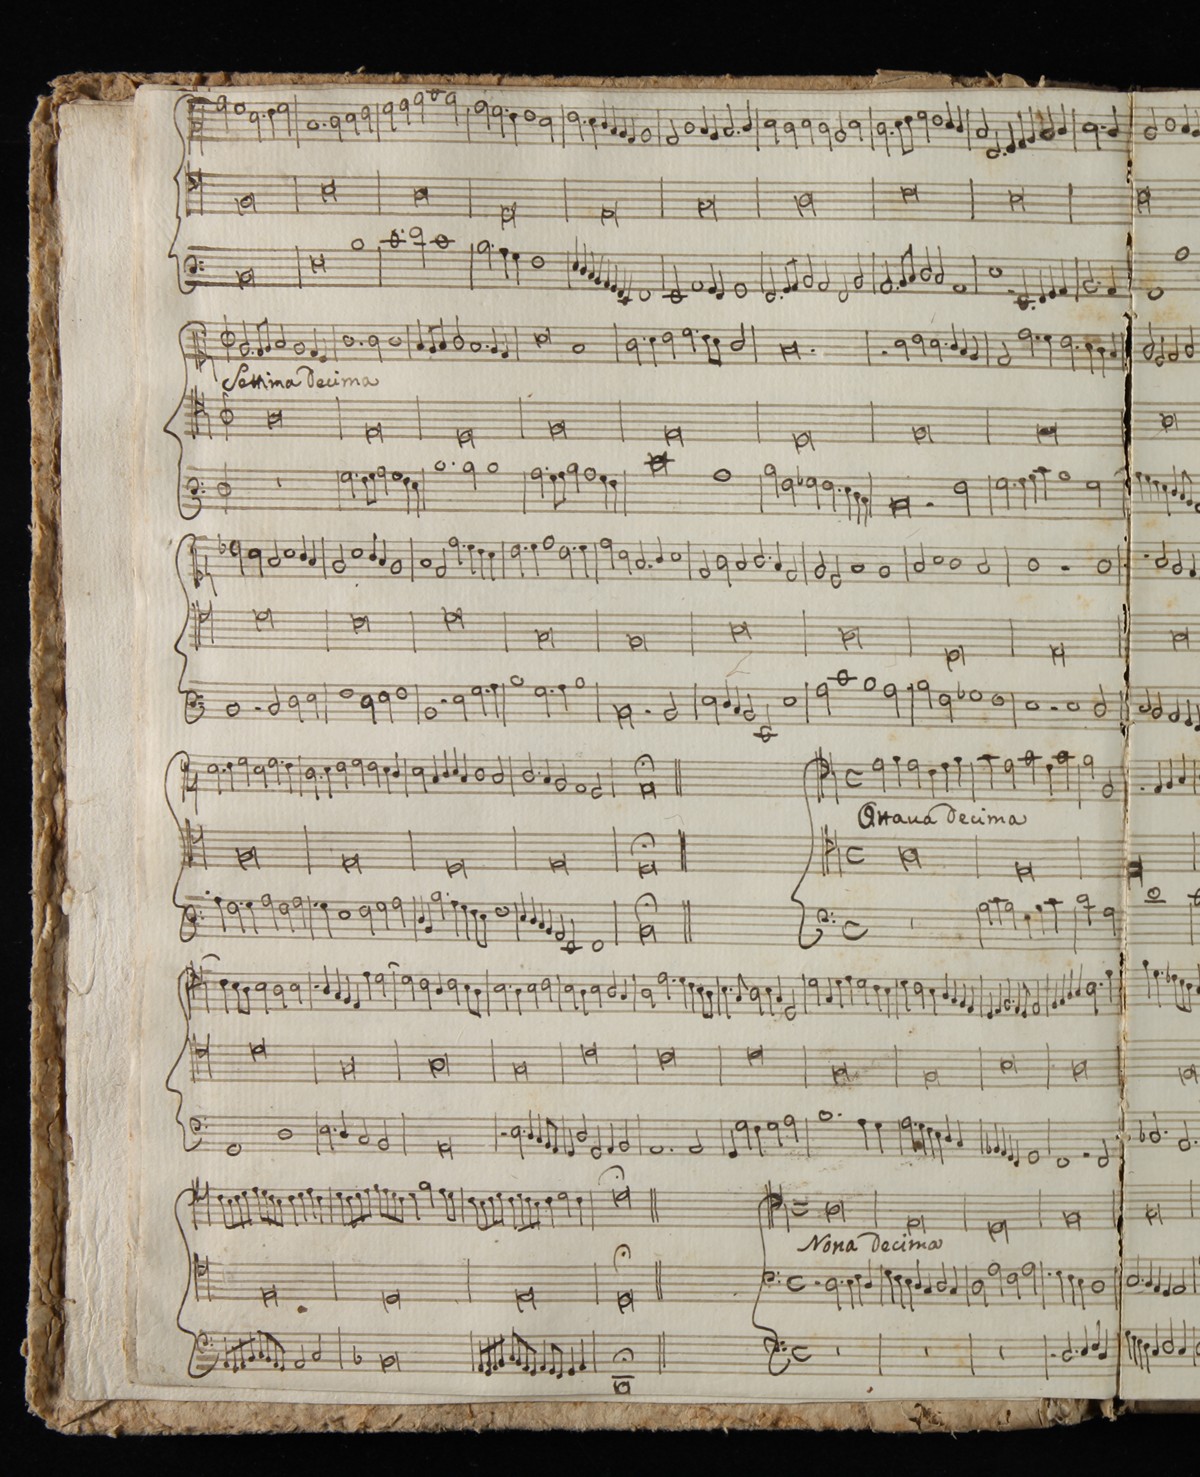 Settima Decima
Ottaua Decima
Nona Decima